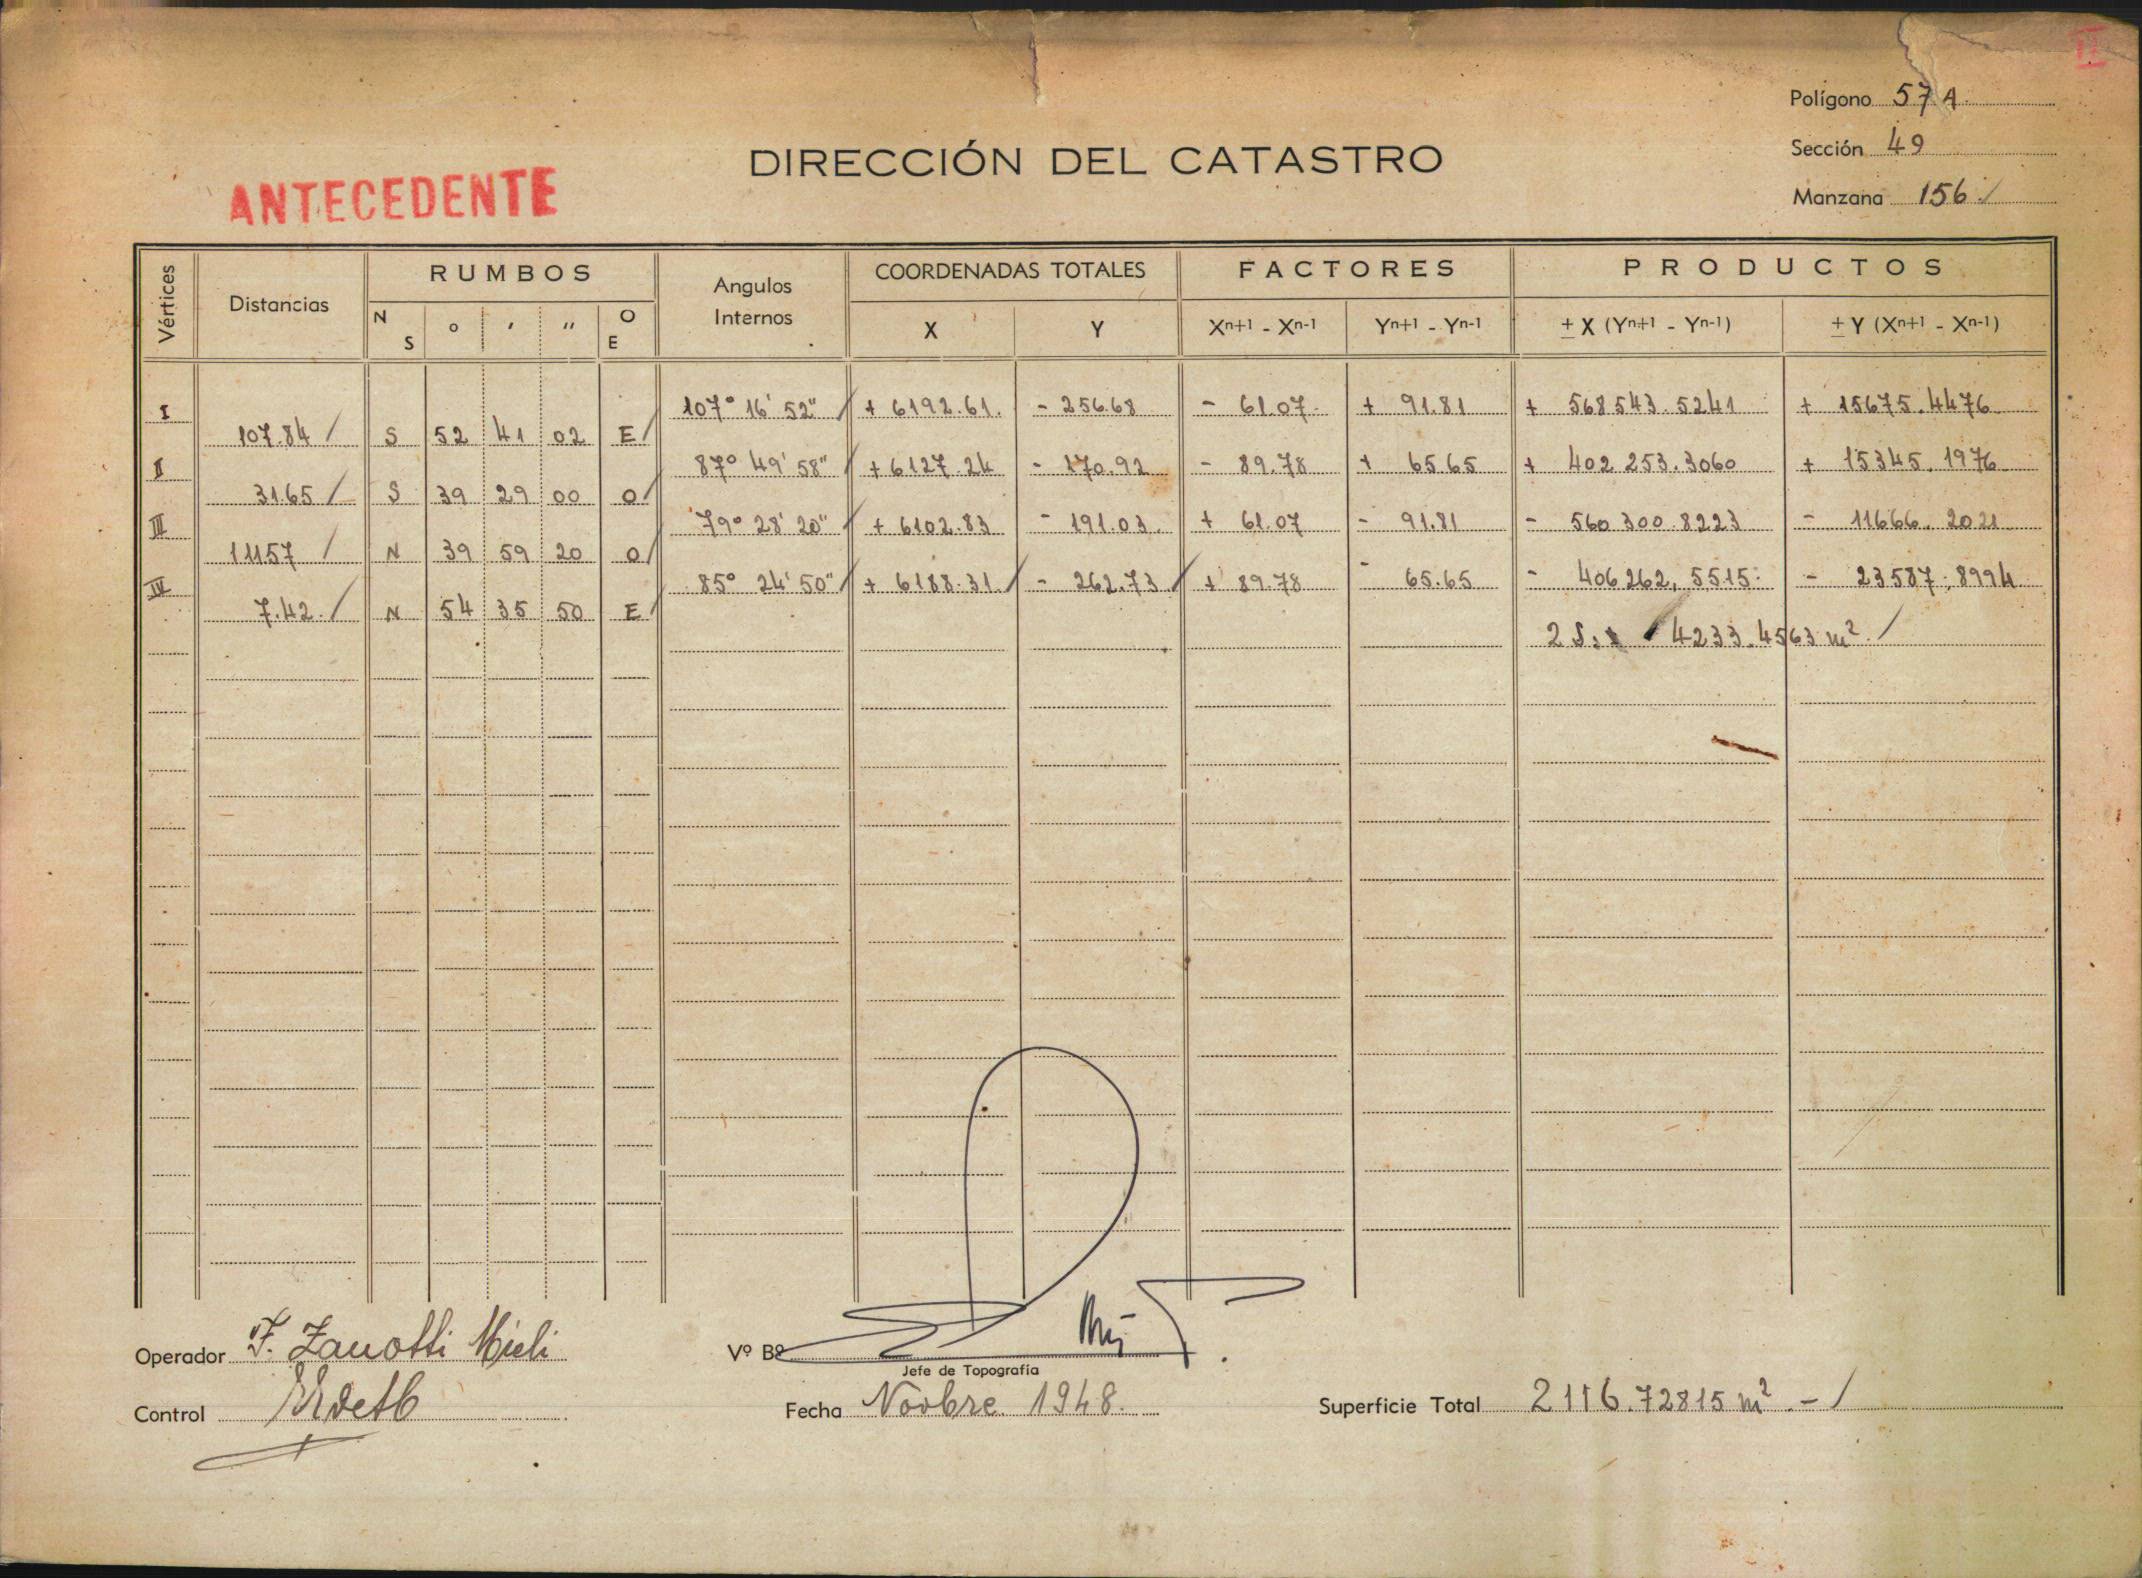 II
Polígono 57 A.
DIRECCIÓN DEL CATASTRO
Sección 49
ANTECEDENTE
Manzana 156
Vértices Distancias RUMBOS Angulos Internos COORDENADAS TOTALES FACTORES PRODUCTOS
N S o ' '' O E X Y Xn+1 - Xn-1 Yn+1 - Yn-1 ± X (Yn+1 - Yn-1) ± Y (Xn+1 - Xn-1)
I 107° 16' 52" + 6192.61. - 256.68 - 61.07 + 91.81 + 568543.5241 + 15675.4476
107.84 S 52 41 02 E
II 87° 49' 58" + 6127.24 - 170.92 - 89.78 + 65.65 + 402253.3060 + 15345.1976
31.65 S 39 29 00 O
III 79° 28' 20" + 6102.83 - 191.03 + 61.07 - 91.81 - 560300.8223 - 11666.2021
111.57 N 39 59 20 O
IV 85° 24' 50" + 6188.31 - 262.73 + 89.78 - 65.65 - 406262,5515 - 23587.8994
7.42 N 54 35 50 E
2 S. 4233.4563 m²
Operador F. Zanotti Mieli
Vº Bº
Jefe de Topografía
Control
Fecha Novbre 1948.
Superficie Total 2116.72815 m² . -